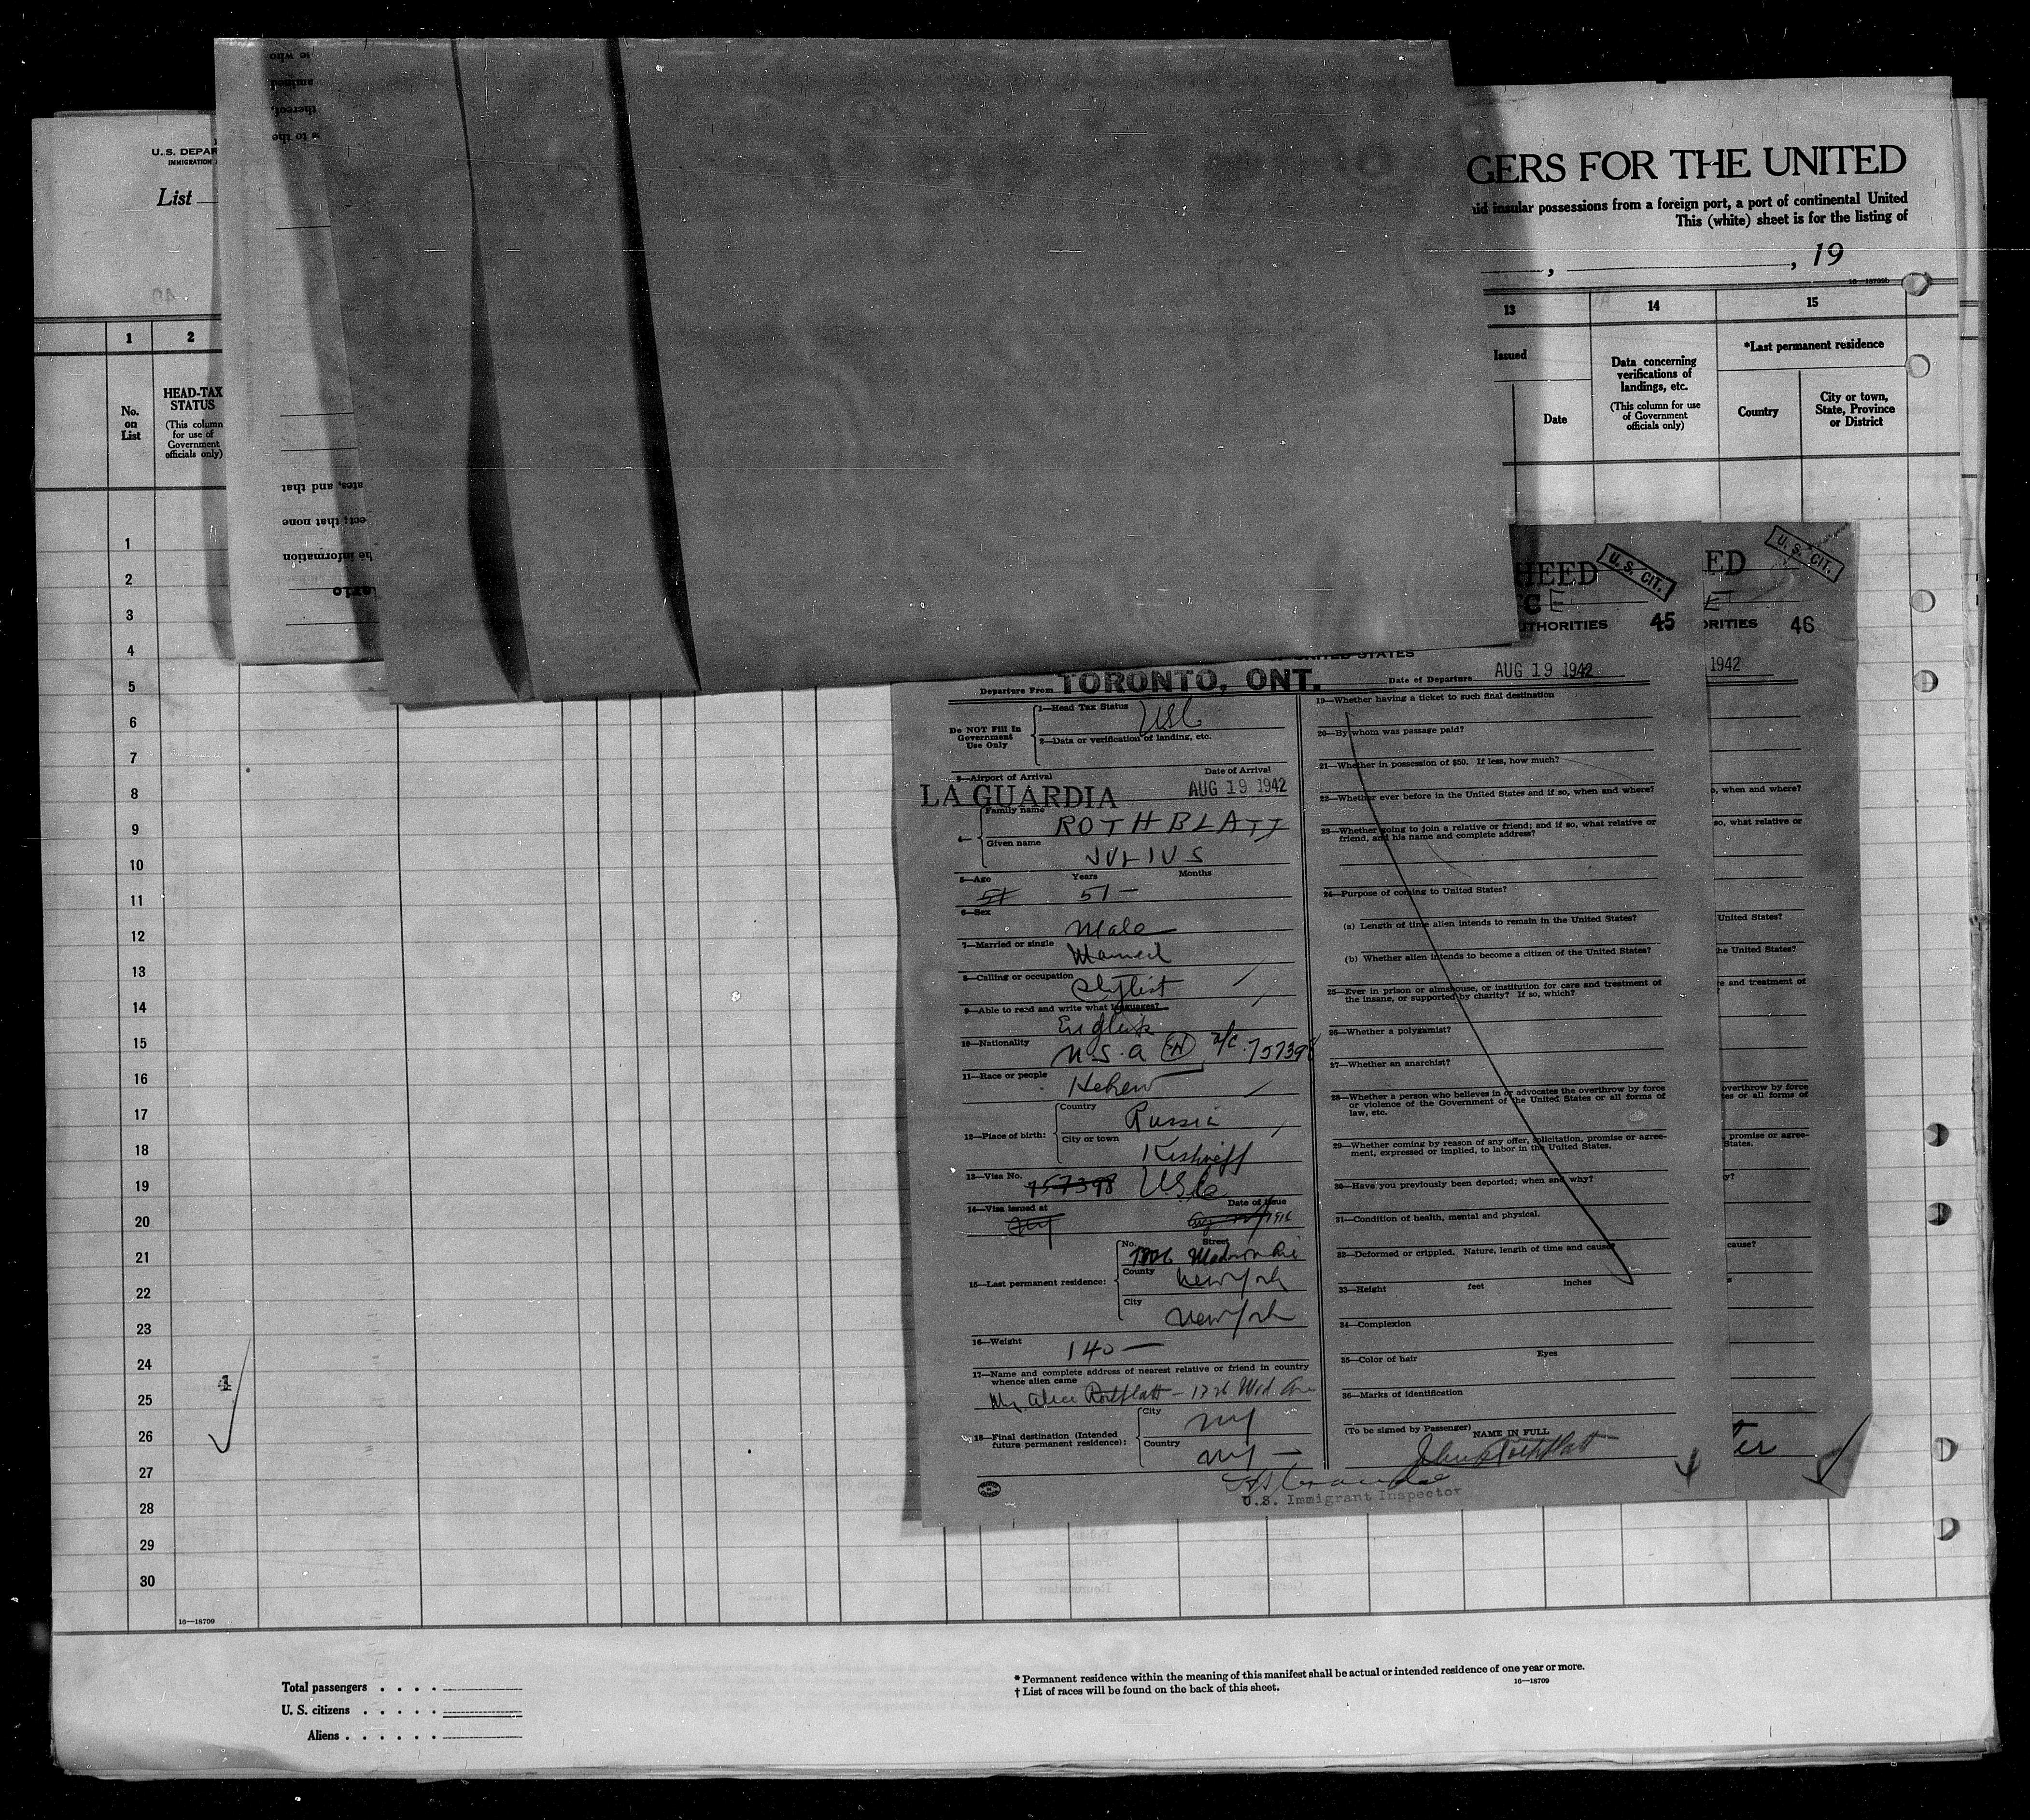 U. S. DEPAR
IMMIGRATION
List
GERS FOR THE UNITED
insular possessions from a foreign port, a port of continental United
This (white) sheet is for the listing of
, , 19
16—18709b
1 2 13 14 15
No. on List
HEAD-TAX STATUS
(This column for use of Government officials only)
Issued
Date
Data concerning verifications of landings, etc.
(This column for use of Government officials only)
*Last permanent residence
Country
City or town, State, Province or District
se who
thereof,
s to the
ates, and that
ect; that none
he information
ario
1
2
3
4
5
6
7
8
9
10
11
12
13
14
15
16
17
18
19
20
21
22
23
24
25
26
27
28
29
30
4
HEED
U. S. CIT.
CE
UTHORITIES 45
ED
U. S. CIT.
E
ORITIES 46
1942
UNITED STATES
Departure From TORONTO, ONT.
Date of Departure AUG 19 1942
Do NOT Fill In Government Use Only
1—Head Tax Status USC
2—Data or verification of landing, etc.
3—Airport of Arrival Date of Arrival
LA GUARDIA AUG 19 1942
4— Family name ROTHBLATT
Given name JULIUS
5—Age Years Months
51 51 —
6—Sex
Male
7—Married or single
Married
8—Calling or occupation
Stylist
9—Able to read and write what languages?
English
10—Nationality
U.S.A 757398
11—Race or people
Hebrew
12—Place of birth: Country Russia
City or town
Kishneff
13—Visa No. 757398 USC
14—Visa issued at Date of Issue
NY 1916
15—Last permanent residence: No. Street
County New York
City
New York
16—Weight
140 —
17—Name and complete address of nearest relative or friend in country
whence alien came
Alice Rothblatt —
18—Final destination (Intended future permanent residence): City NY
Country NY —
19—Whether having a ticket to such final destination
20—By whom was passage paid?
21—Whether in possession of $50. If less, how much?
22—Whether ever before in the United States and if so, when and where?
23—Whether going to join a relative or friend; and if so, what relative or
friend, and his name and complete address?
24—Purpose of coming to United States?
(a) Length of time alien intends to remain in the United States?
(b) Whether alien intends to become a citizen of the United States?
25—Ever in prison or almshouse, or institution for care and treatment of
the insane, or supported by charity? If so, which?
26—Whether a polygamist?
27—Whether an anarchist?
28—Whether a person who believes in or advocates the overthrow by force
or violence of the Government of the United States or all forms of
law, etc.
29—Whether coming by reason of any offer, solicitation, promise or agree-
ment, expressed or implied, to labor in the United States.
30—Have you previously been deported; when and why?
31—Condition of health, mental and physical.
32—Deformed or crippled. Nature, length of time and cause?
33—Height feet inches
34—Complexion
35—Color of hair Eyes
36—Marks of identification
(To be signed by Passenger) NAME IN FULL
U.S. Immigrant Inspector
o, when and where?
so, what relative or
United States?
he United States?
re and treatment of
overthrow by force
tes or all forms of
, promise or agree-
States.
y?
cause?
s
ter
16—18709
Total passengers . . . .
U. S. citizens . . . . .
Aliens . . . . . .
* Permanent residence within the meaning of this manifest shall be actual or intended residence of one year or more.
† List of races will be found on the back of this sheet.
16—18709